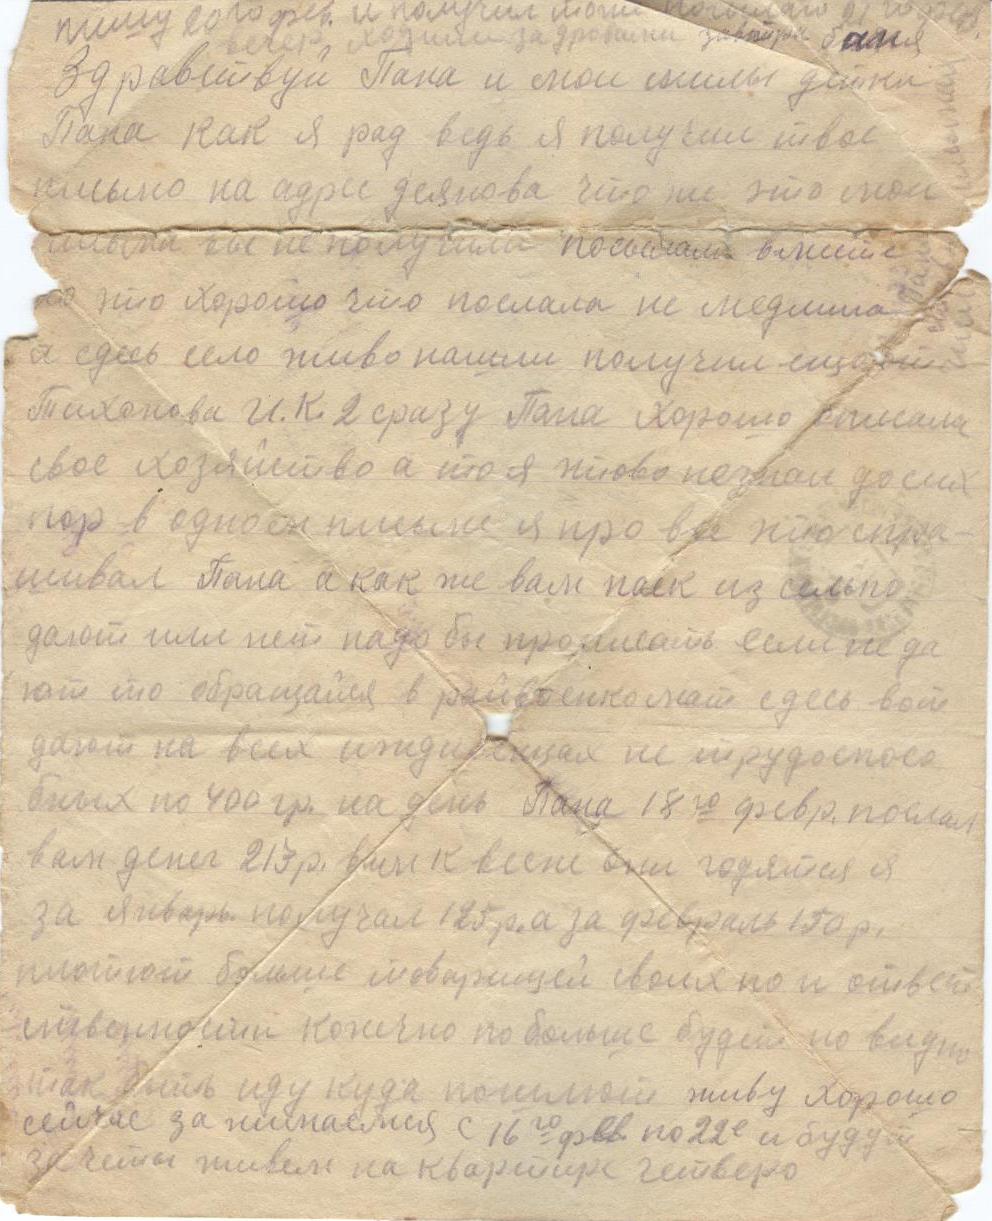 пишу 20го фев. и получил
вечер ходили за дровами завтра баня
Здравствуй Пана и мои милы детки
Пана как я рад ведь я получил твое
письмо на адрес деянова что же это мои
письма вы не получили посылали вместе
но это хорошо что послала не медлила
а сдесь село живо нашли получил
Тихонова И.К. 2 сразу Пана хорошо описала
свое хозяйство а то я этово не знал досих
пор в одном письме я про все это спра-
шивал Пана а как же вам паек из сельпо
дают или нет надо бы прописать если не да
ют то обращайся в райвоенкомат сдесь вот
дают на всех иждивенцах не трудоспосо
бных по 400 гр. на день Пана 18го февр. послал
вам денег 213 р. вам к весне они годятся я
за январь получал 125 р. а за февраль 150 р.
плотют больше товарищей своих но и ответ
ственности конечно по больше будет но видно
так быть иду куда пошлют живу хорошо
сейчас занимаемся с 16го фев по 22е и будут
зачеты живем на квартире четверо